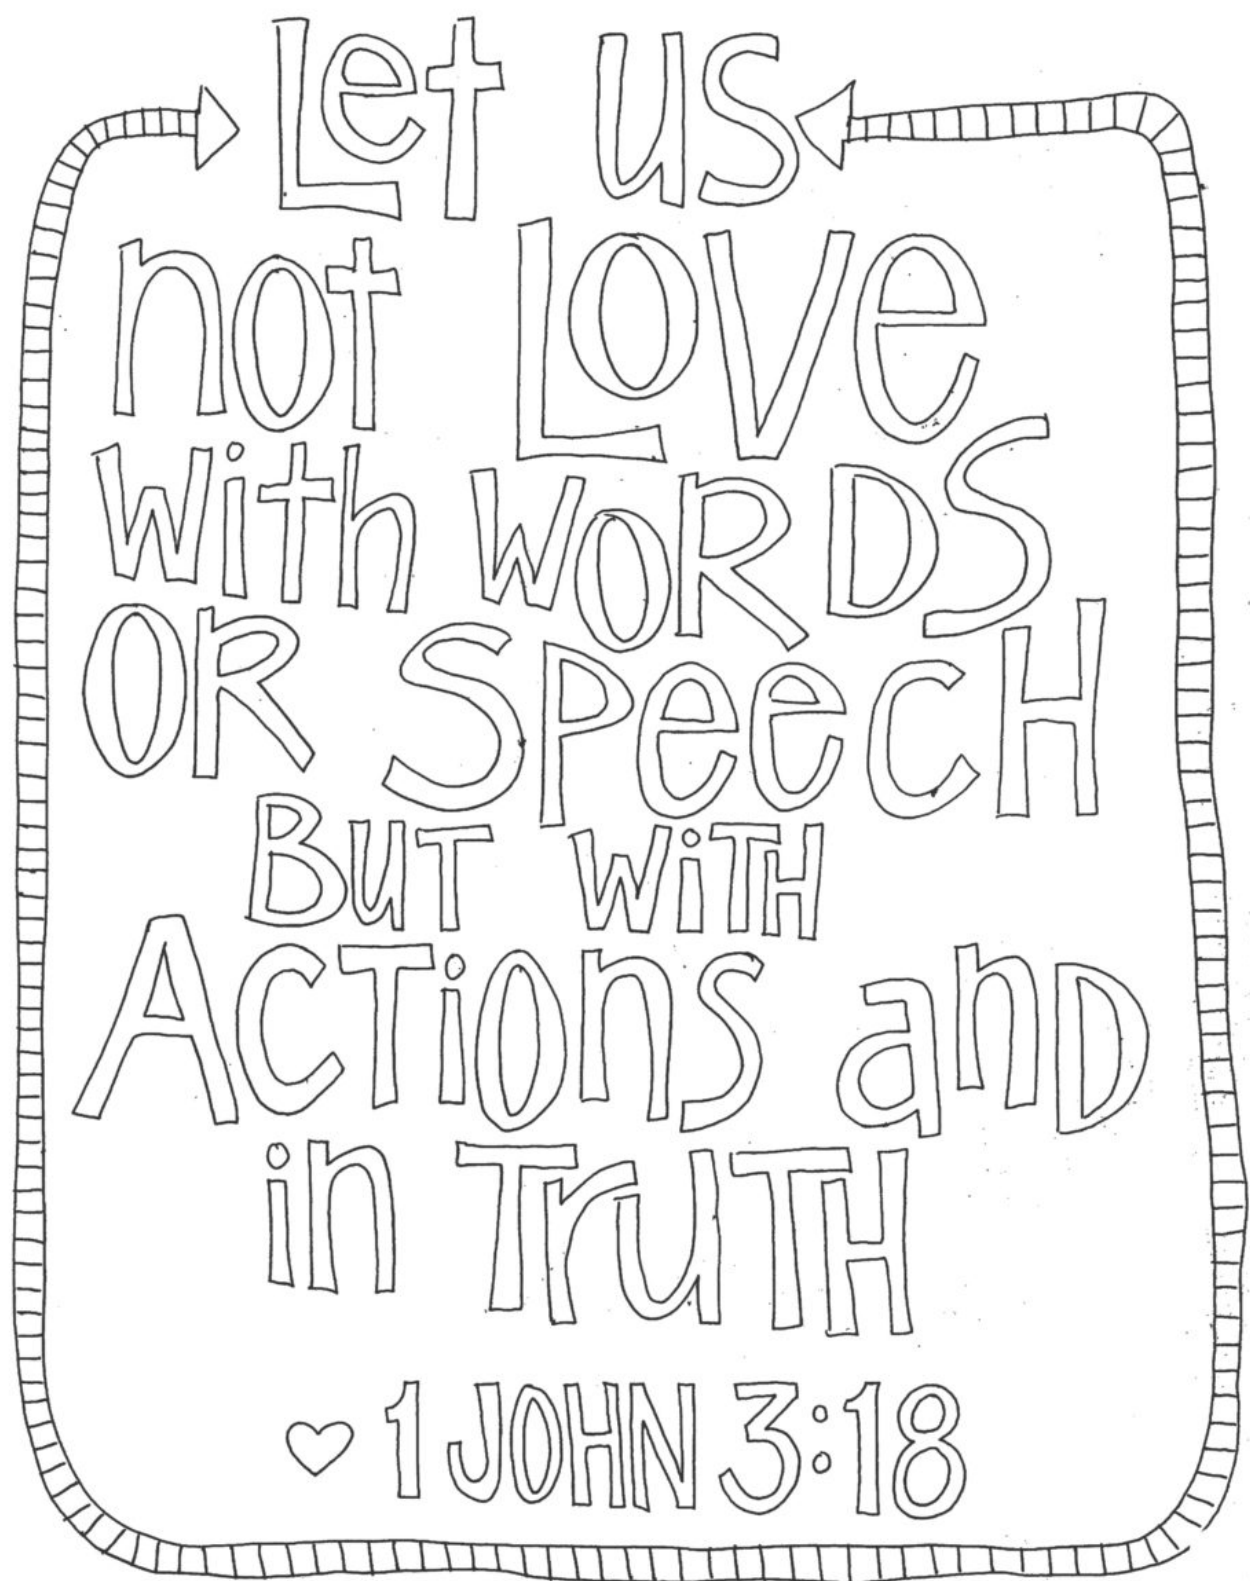 Let us
not Love
with WORDS
OR SPeecH
BUT WiTH
ACTiOnS anD
in TruTH
♡ 1 JOHN 3:18